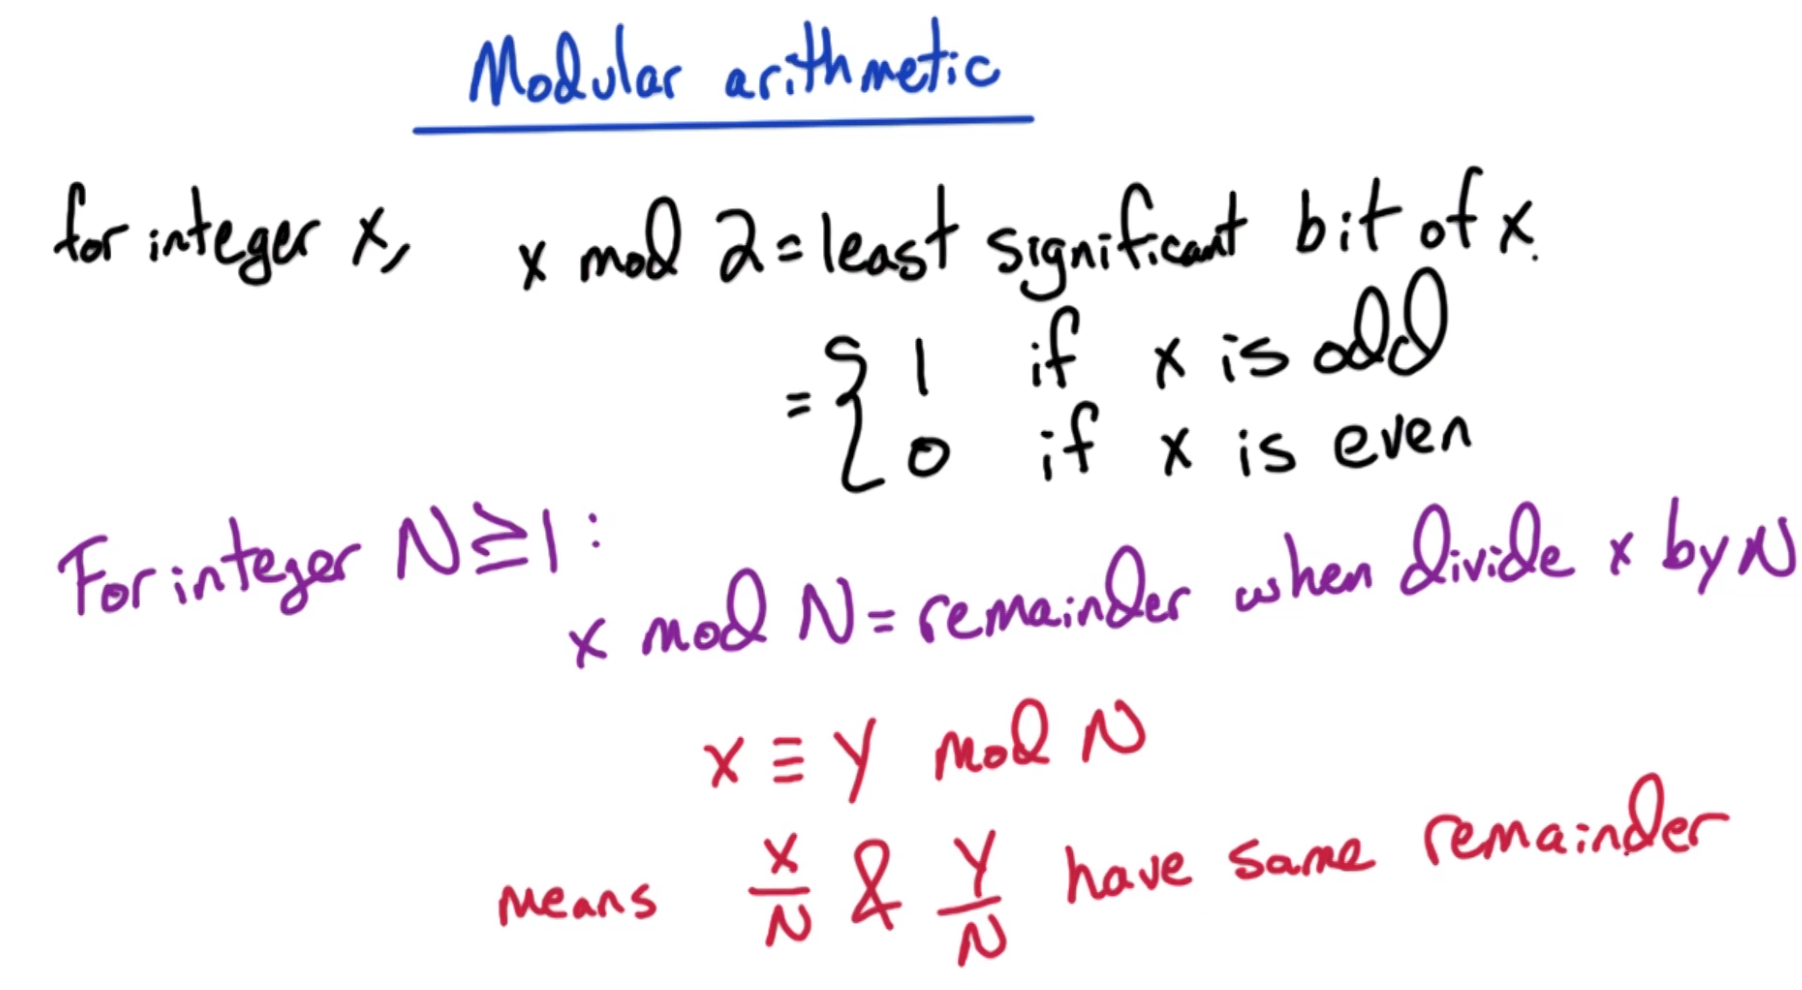 Modular arithmetic
for integer x, x mod 2 = least significant bit of x.
= { 1 if x is odd
0 if x is even
For integer N ≥ 1:
x mod N = remainder when divide x by N
x ≡ y mod N
means x/N & y/N have same remainder